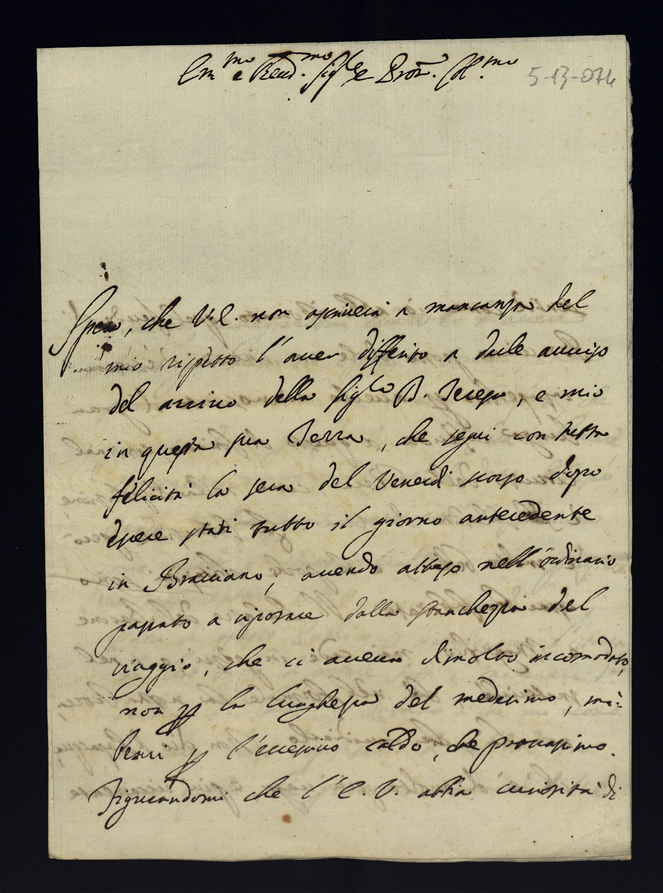 Em.mo e Rev.mo Sig.re e Pron. Col.mo
5-13-074
Spero, che V.E. non ascriverà a mancanza del
mio rispetto l'aver differito a darle avviso
del arrivo della Sig.ra B. Teresa, e mio
in questa sua Terra, che seguì con tutta
felicità la sera del Venerdì scorso dopo
essere stati tutto il giorno antecedente
in Bracciano, avendo atteso nell'ordinario
passato a riposare dalla stanchezza del
viaggio, che ci aveva di molto incomodato,
non p la lunghezza del medesimo, ma
bensì p l'eccessivo caldo, che provassimo.
Figurandomi che l'E.V. abbia curiosità di